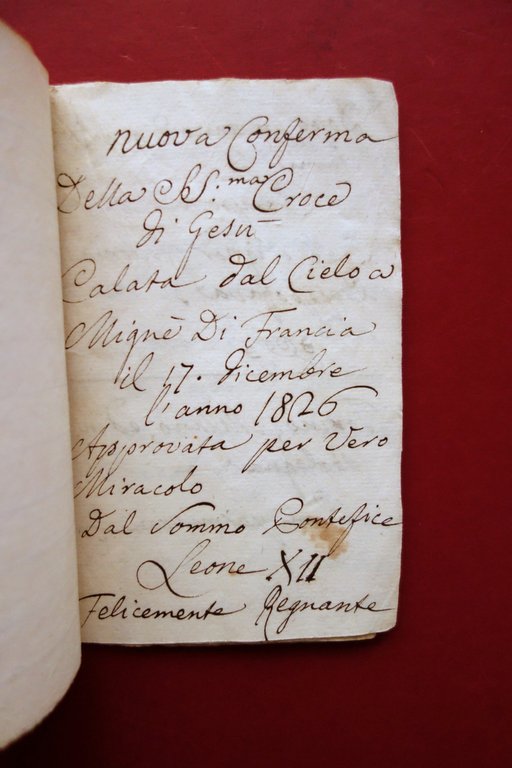 nuova Conferma
Della SS.ma Croce
di Gesù
Calata dal Cielo a
Mignè Di Francia
il 17. dicembre
l'anno 1826
Approvata per Vero
Miracolo
Dal Sommo Pontefice
Leone XII
Felicemente Regnante